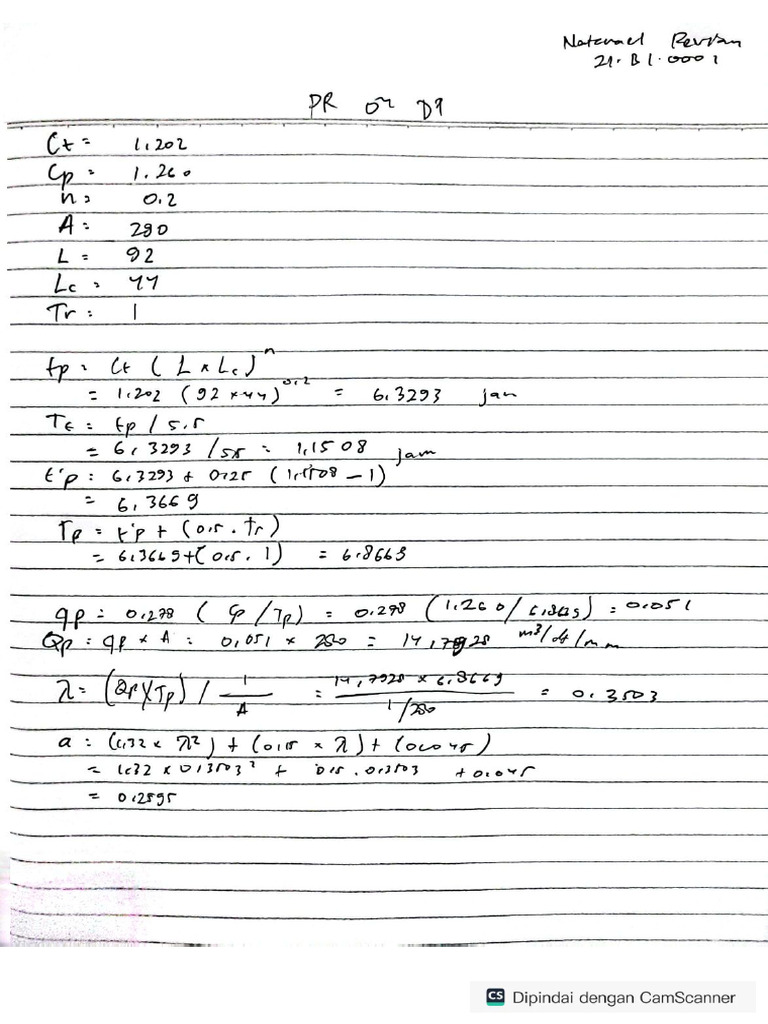 Natanael Revian
21.B1.0001
PR
Ct = 1,202
Cp = 1.260
n = 0.2
A = 290
L = 92
Lc = 44
Tr = 1
tp = Ct ( L x Lc )ⁿ
= 1.202 ( 92 x 44 )^0.2 = 6.3293 jam
Te = tp / 5.5
= 6,3293 / 5.5 = 1,1508 jam
t'p = 6,3293 + 0.25 ( 1,1508 - 1 )
= 6,3669
Tp = t'p + ( 0.5 . tr )
= 6.3669 + ( 0.5 . 1 ) = 6.8669
qp = 0.278 ( Cp / Tp ) = 0.278 ( 1.260 / 6.8669 ) = 0.051
Qp = qp x A = 0,051 x 290 = 14,7928 m³/dt/mm
λ = ( Qp x Tp ) / 1/A = 14,7928 x 6.8669 / 1/290 = 0.3503
a = ( 1.32 x λ² ) + ( 0.15 x λ ) + ( 0.045 )
= 1.32 x 0.3503² + 0.15 . 0.3503 + 0.045
= 0.2595
CS Dipindai dengan CamScanner